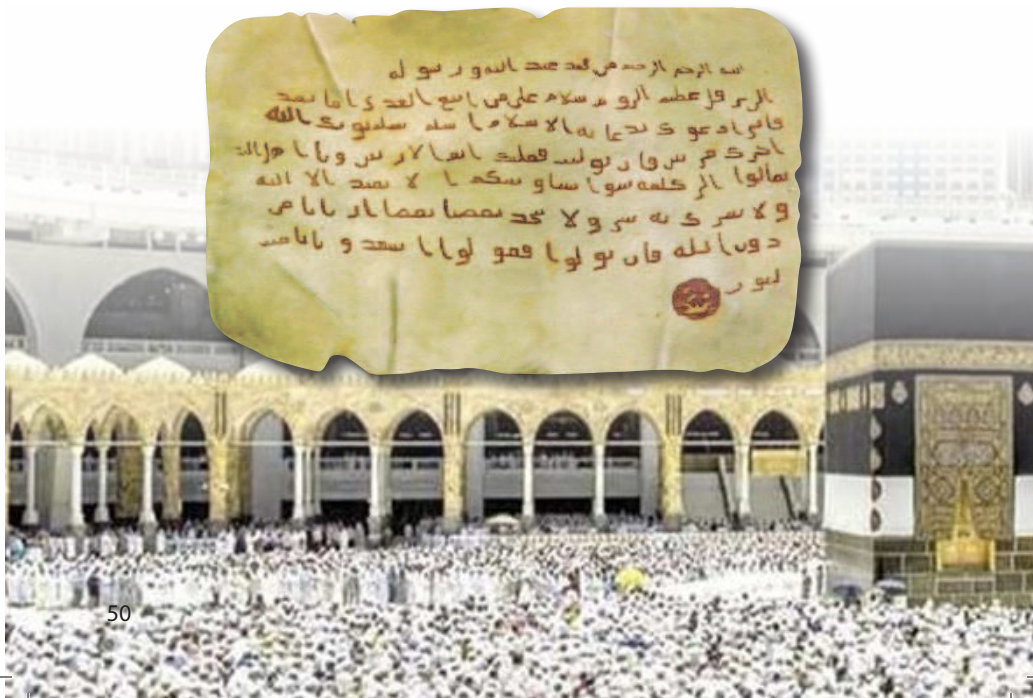 الرحمن الرحيم من محمد عبد الله ورسوله
الى هرقل عظيم الروم سلام على من اتبع الهدى اما بعد
فانى ادعوك بدعاية الاسلام اسلم تسلم يوتك الله
اجرك مرتين فان توليت فعليك اثم الاريسين ويا اهل
تعالوا الى كلمة سوا بيننا وبينكم ا لا نعبد الا الله
ولا نشرك به شيا ولا يتخذ بعضنا بعضا اربابا من
دون الله فان تولوا فقولوا اشهدوا بانا مسـ
لمون
50